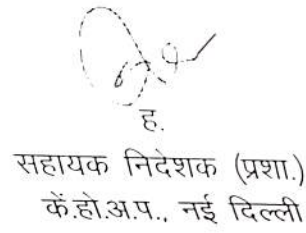 ह.
सहायक निदेशक (प्रशा.)
कें.हो.अ.प., नई दिल्ली